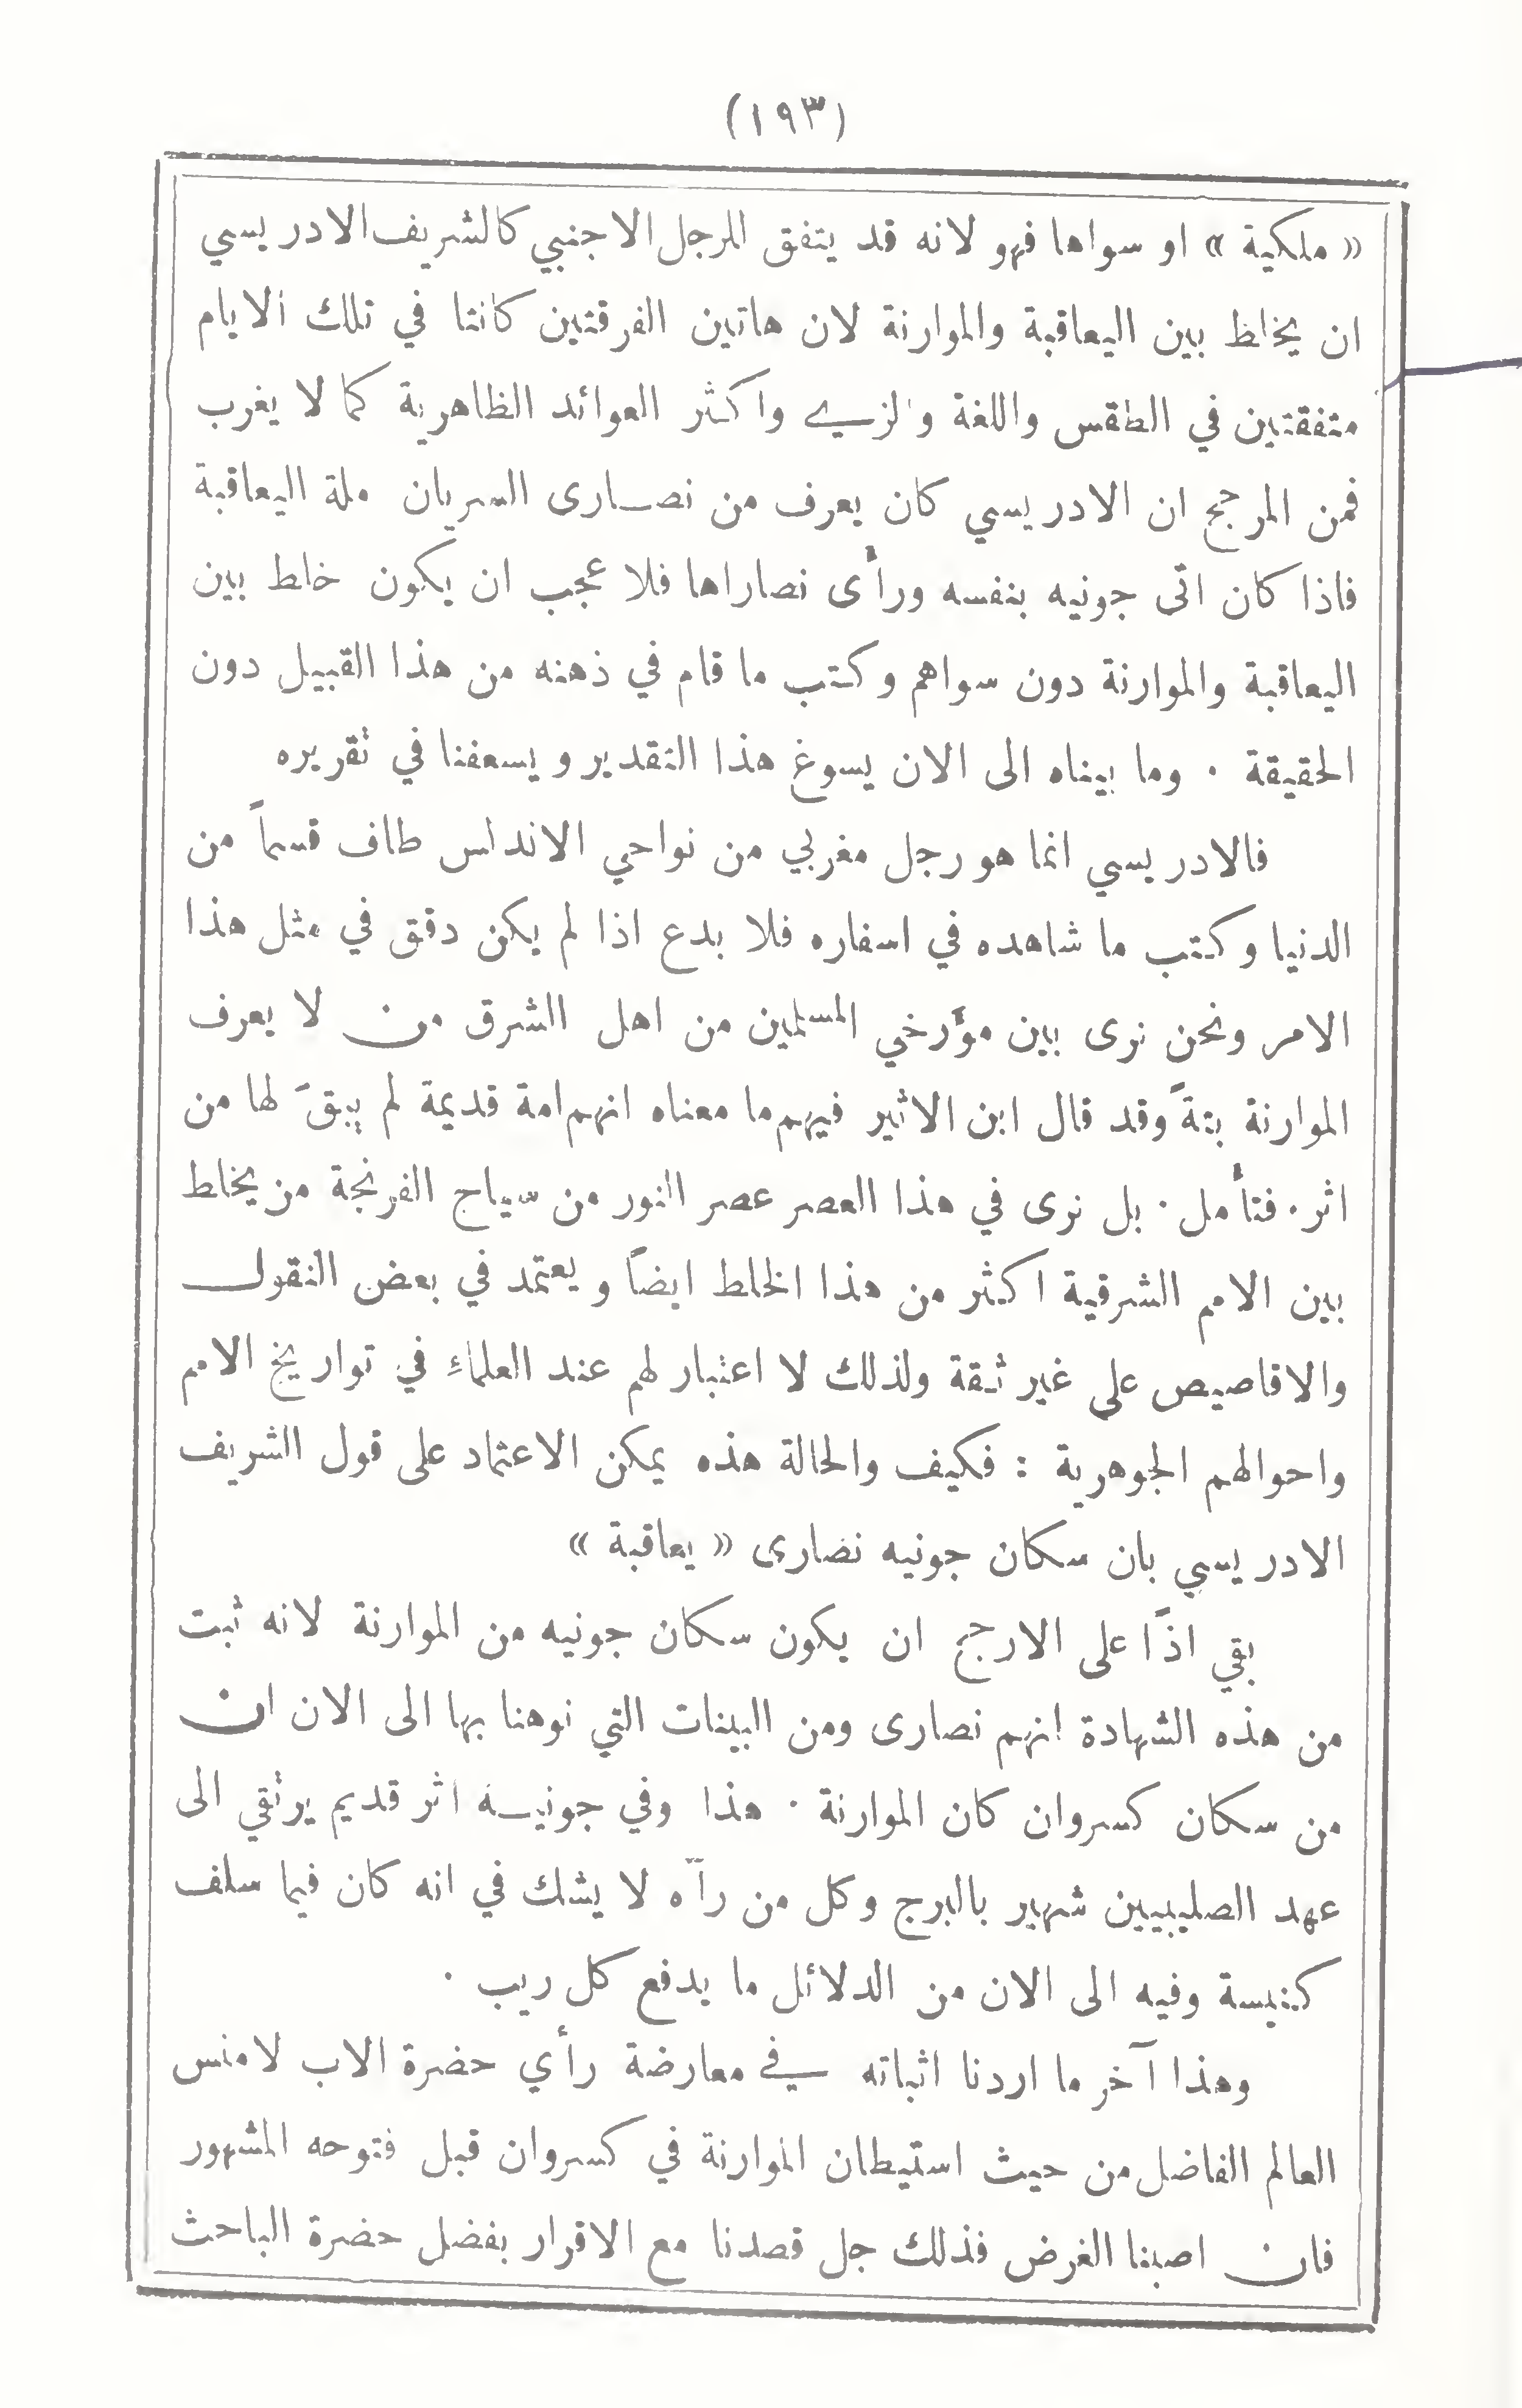 (١٩٣)
« ملكية » او سواها فهو لانه قد يتفق للرجل الاجنبي كالشريف الادريسي
ان يخلط بين اليعاقبة والموارنة لان هاتين الفرقتين كانتا في تلك الايام
متفقتين في الطقس واللغة والزي واكثر العوائد الظاهرية كما لا يغرب
فمن المرجح ان الادريسي كان يعرف من نصارى السريان ملة اليعاقبة
فاذا كان اتى جونيه بنفسه ورأى نصاراها فلا عجب ان يكون خلط بين
اليعاقبة والموارنة دون سواهم وكتب ما قام في ذهنه من هذا القبيل دون
الحقيقة . وما بيناه الى الان يسوغ هذا التقدير ويسعفنا في تقريره
فالادريسي انما هو رجل مغربي من نواحي الاندلس طاف قسماً من
الدنيا وكتب ما شاهده في اسفاره فلا بدع اذا لم يكن دقق في مثل هذا
الامر ونحن نرى بين مؤَرخي المسلمين من اهل الشرق من لا يعرف
الموارنة بتةً وقد قال ابن الاثير فيهم ما معناه انهم امة قديمة لم يبقَ لها من
اثر . فتأمل . بل نرى في هذا العصر عصر النور من سياج الفرنجة من يخلط
بين الامم الشرقية اكثر من هذا الخلط ايضاً ويعتمد في بعض النقول
والاقاصيص على غير ثقة ولذلك لا اعتبار لهم عند العلماءِ في تواريخ الامم
واحوالهم الجوهرية : فكيف والحالة هذه يمكن الاعتماد على قول الشريف
الادريسي بان سكان جونيه نصارى « يعاقبة »
بقي اذًا على الارجح ان يكون سكان جونيه من الموارنة لانه ثبت
من هذه الشهادة انهم نصارى ومن البينات التي نوهنا بها الى الان ان
من سكان كسروان كان الموارنة . هذا وفي جونيه اثر قديم يرتقي الى
عهد الصليبيين شهير بالبرج وكل من رآه لا يشك في انه كان فيما سلف
كنيسة وفيه الى الان من الدلائل ما يدفع كل ريب .
وهذا آخر ما اردنا اثباته في معارضة رأي حضرة الاب لامنس
العالم الفاضل من حيث استيطان الموارنة في كسروان قبل فتوحه المشهور
فان اصبنا الغرض فذلك جل قصدنا مع الاقرار بفضل حضرة الباحث